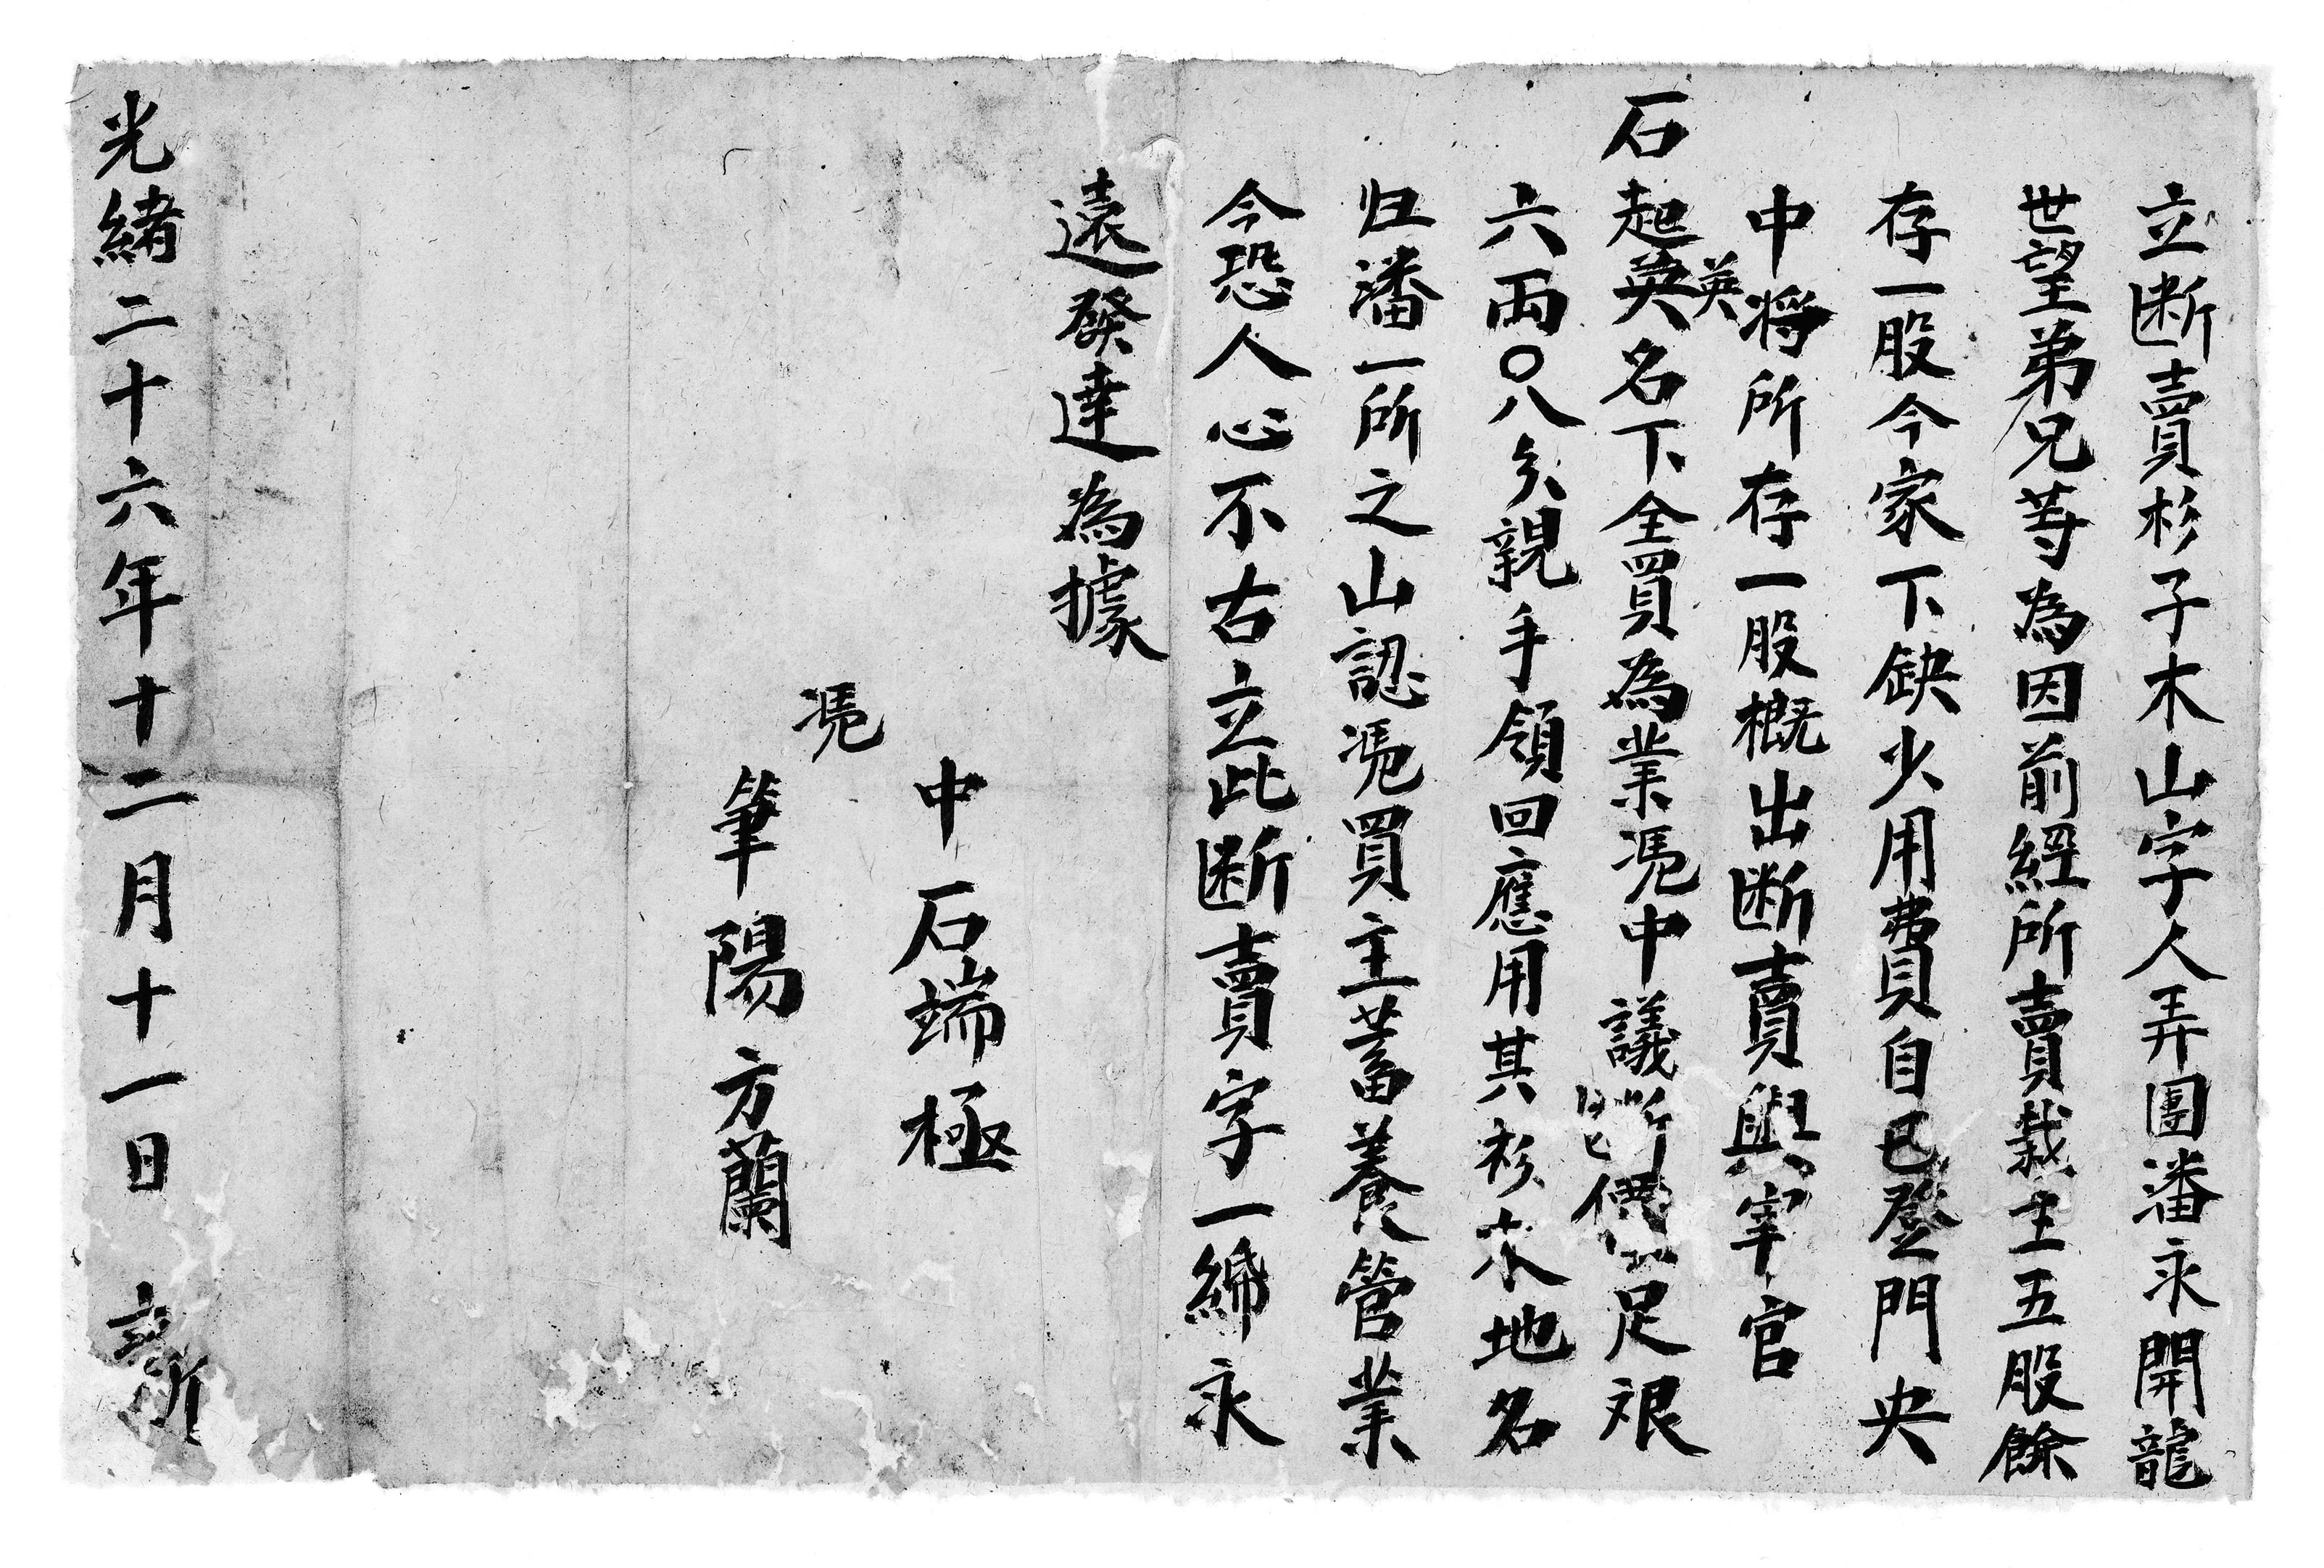 立断賣杉子木山字人弄團潘永開龍
世望弟兄等為因前經所賣栽主五股餘
存一股今家下缺少用費自己登門央
中將所存一股概出断賣與宰官
石起英名下全買為業慿中議断價足艮
英
六両〇八分親手領回應用其衫木地名
归潘一所之山認慿買主蓄養管業
今恐人心不古立此断賣字一綿永
遠發達為據
中石端極
慿
筆陽方蘭
光緒二十六年十二月十一日 立断